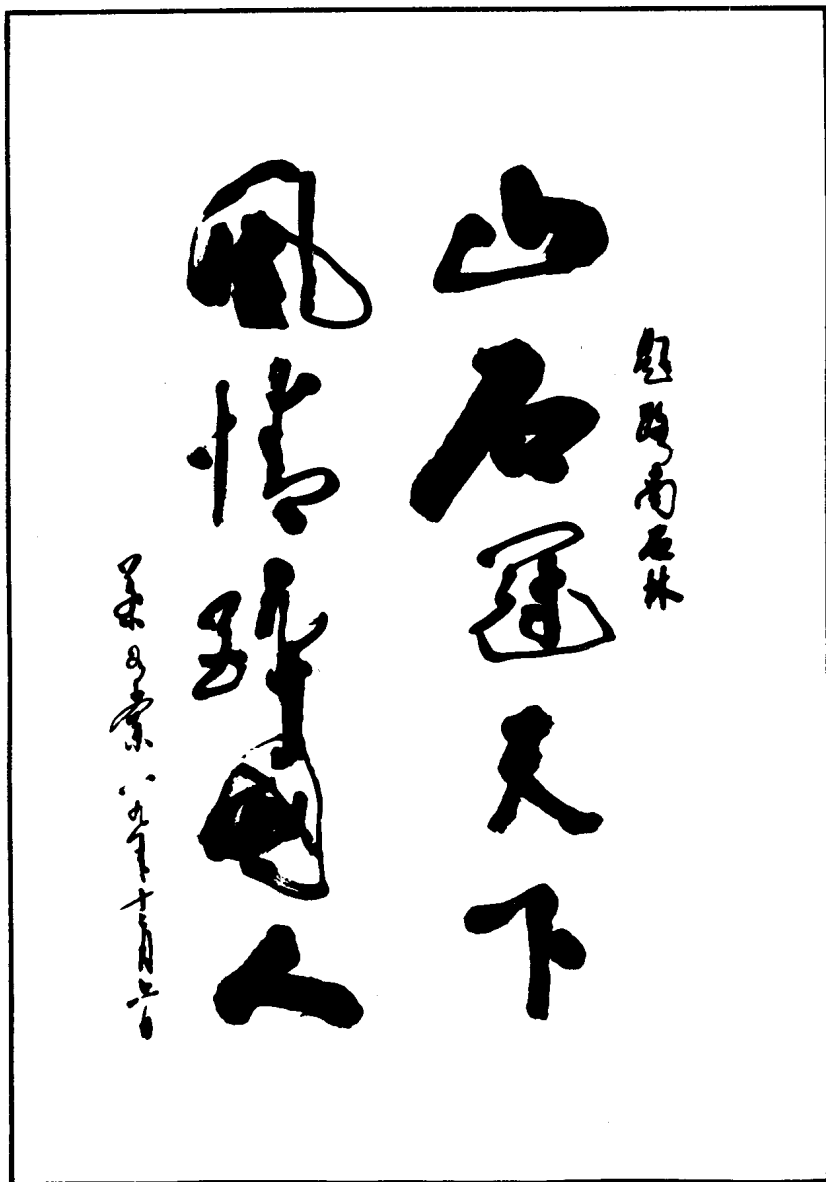 题路南石林
山石冠天下
风情醉国人
八九年十二月六日